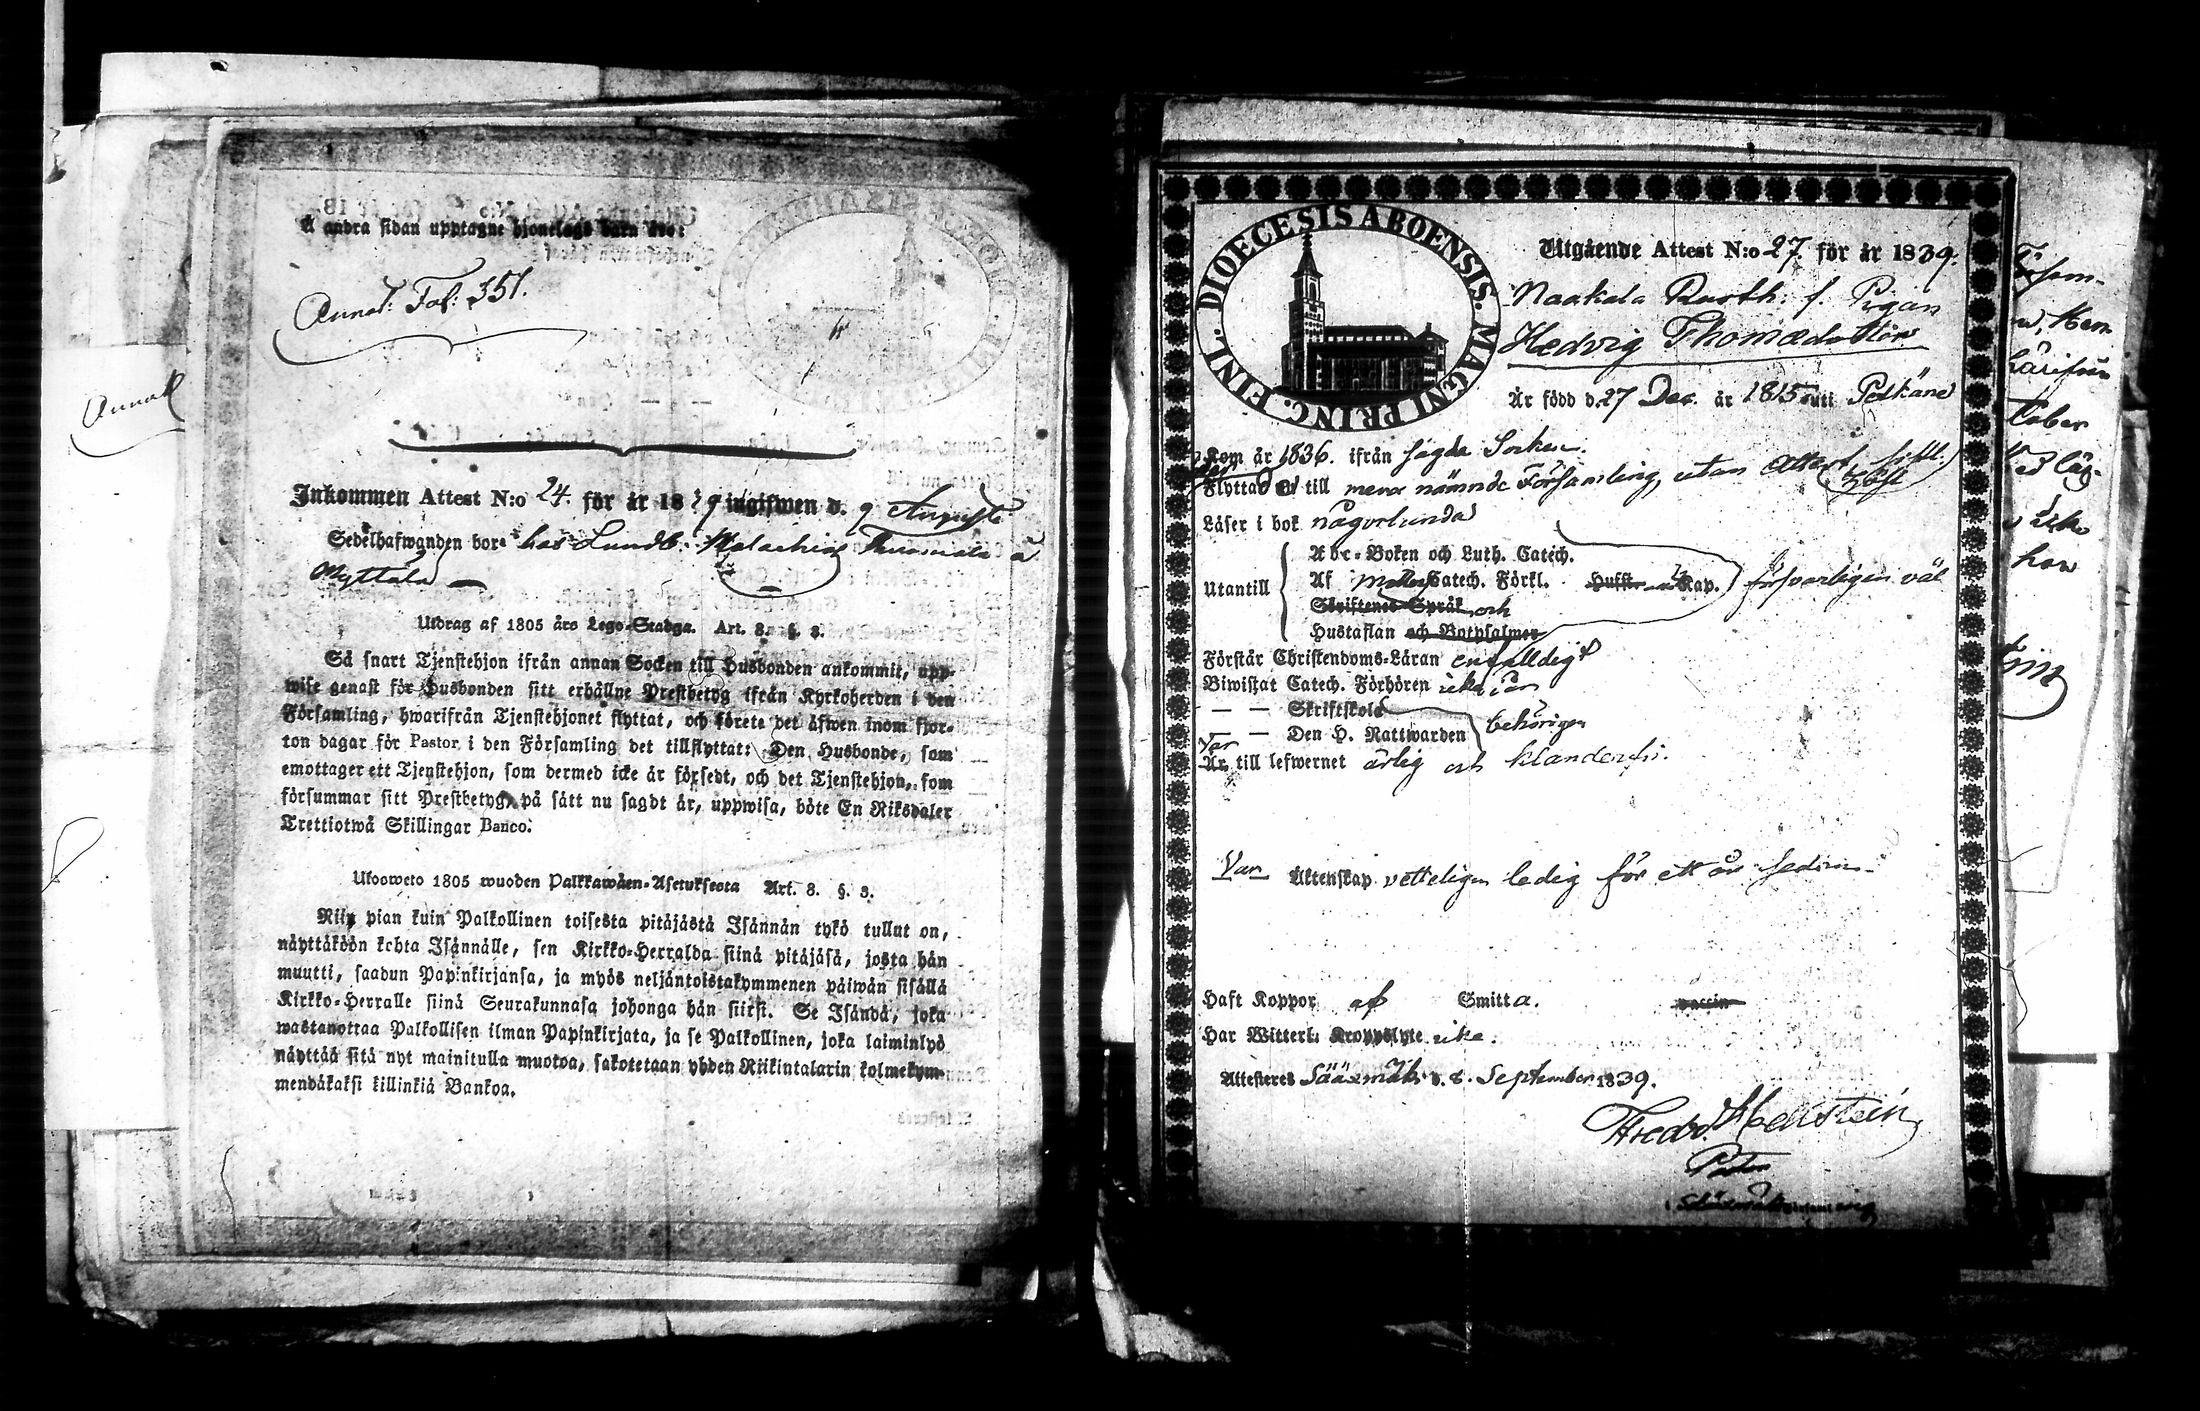 Å andra sidan upptagne hjonelags barn äro:
Annot: Fol: 351.
Inkommen Attest N:o 24. för år 1839 ingifwen d. 9 Augusti
Sedelhafwanden bor hos Lundb. å
Utdrag af 1805 års Lego-Stadga. Art. 8. §. 3.
Så snart Tjenstehjon ifrån annan Socken till Husbonden ankommit, upp-
wise genast för Husbonden sitt erhållne Prestbetyg ifrån Kyrkoherden i den
Församling, hwarifrån Tjenstehjonet flyttat, och förete det äfwen inom fjor-
ton dagar för Pastor i den Församling det tillflyttat: Den Husbonde, som
emottager ett Tjenstehjon, som dermed icke är försedt, och det Tjenstehjon, som
försummar sitt Prestbetyg, på sätt nu sagdt är, uppwisa, böte En Riksdaler
Trettiotwå Skillingar Banco.
Ulosweto 1805 wuoden Palkkawäen-Asetuksesta Art. 8. §. 3.
Niin pian kuin Palkollinen toisesta pitäjästä Isännän tykö tullut on,
näyttäköön kohta Isännälle, sen Kirkko-Herralda siinä pitäjäsä, josta hän
muutti, saadun Papinkirjansa, ja myös neljäntoistakymmenen päiwän sisällä
Kirkko-Herralle siinä Seurakunnasa johonga hän siirsi. Se Isändä, joka
wastanottaa Palkollisen ilman Papinkirjata, ja se Palkollinen, joka laiminlyö
näyttää sitä nyt mainitulla muotoa, sakotetaan yhden Riikintalarin kolmekym-
mendäkaksi killinkiä Bankoa.
DIOECESIS ABOENSIS. MAGNI PRINC. FINL.
Utgående Attest N:o 27. för år 1839.
Naakala Rusth. f. Pigan
Hedvig Thomædotter
Är född d. 27 Dec. år 1815 uti Pelkäne
Kom år 1836. ifrån sagde Socken.
Flyttad till nämnde Församling, utan Attest sistl. höst
Läser i bok någorlunda
Abc-Boken och Luth. Catech.
Utantill Af Catech. Förkl. Kap. försvarligen väl
Skriftenes Språk och
Hustaflan och Botpsalmer
Förstår Christendoms-Läran enfalldigt
Biwistat Catech. Förhören icke i år
— — Skriftskola
— — Den H. Nattwarden behörigen
Var
Är till lefwernet ärlig och klanderfri.
Var Äktenskap vetteligen ledig för ett år sedan.
Haft Koppor af Smitta. vaccin
Har Witterl: Kroppslyte icke.
Attesteres Sääxmäki d. 8. September 1839.
Pastor
Annot